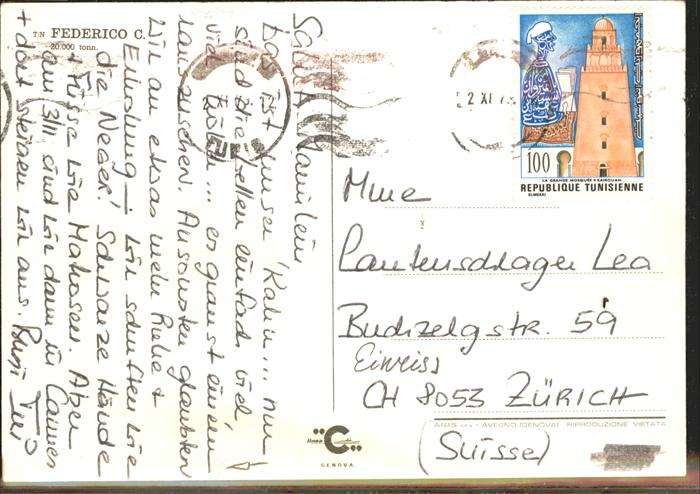 T/N FEDERICO C.
20.000 tonn.
Das ist unser "Kahn"... nur
sind die Wellen einfach viel,
viel höher... es graust einem
rauszusehen. Ansonsten glaubten
wir an etwas mehr Ruhe +
Erholung – wir schuften wie
die Neger! Schwarze Hände
+ Füsse wie Matrosen. Aber
am 3/11 sind wir dann in Cannes
+ dort steigen wir aus.
2 XI
100
LA GRANDE MOSQUÉE • KAIROUAN
REPUBLIQUE TUNISIENNE
ELMEKKI
Mme
Lautenschlager Lea
Buchzelgstr. 59
CH 8053 ZÜRICH
(Suisse)
linea C
GENOVA
AVEGNO (GENOVA) RIPRODUZIONE VIETATA